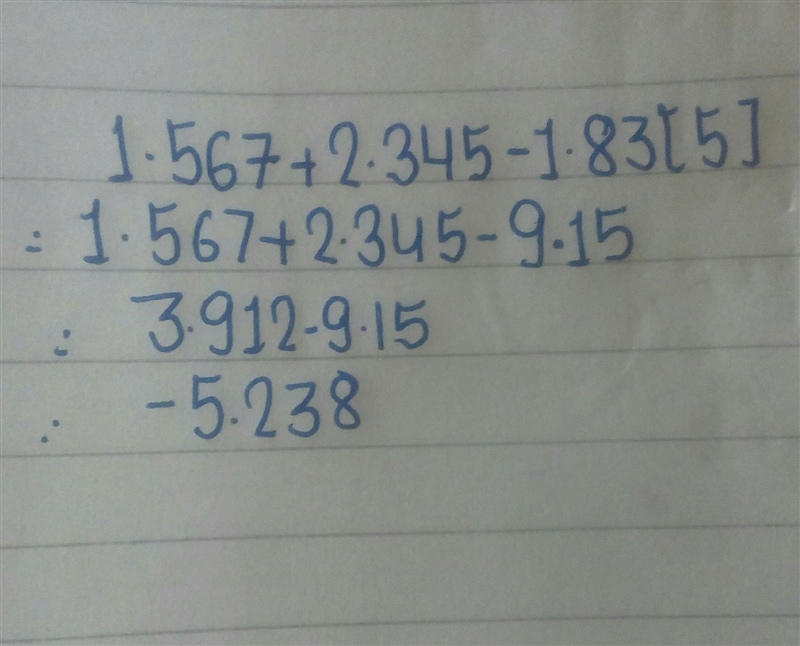 1·567+2·345-1·83[5]
= 1·567+2·345-9·15
∴ 3·912-9·15
∴ -5·238